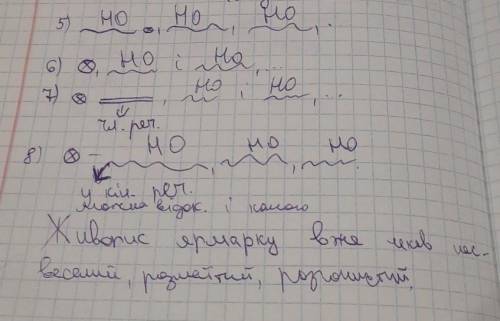 5) НО, НО, НО.
6) ⊗, НО і НО, ...
7) ⊗ , НО і НО, ...
чл. реч.
8) ⊗ – НО, НО, НО.
у кін. реч.
можна відок. і комою
Живопис ярмарку вже чекав нас-
веселий, розмаїтий, розгонистий.